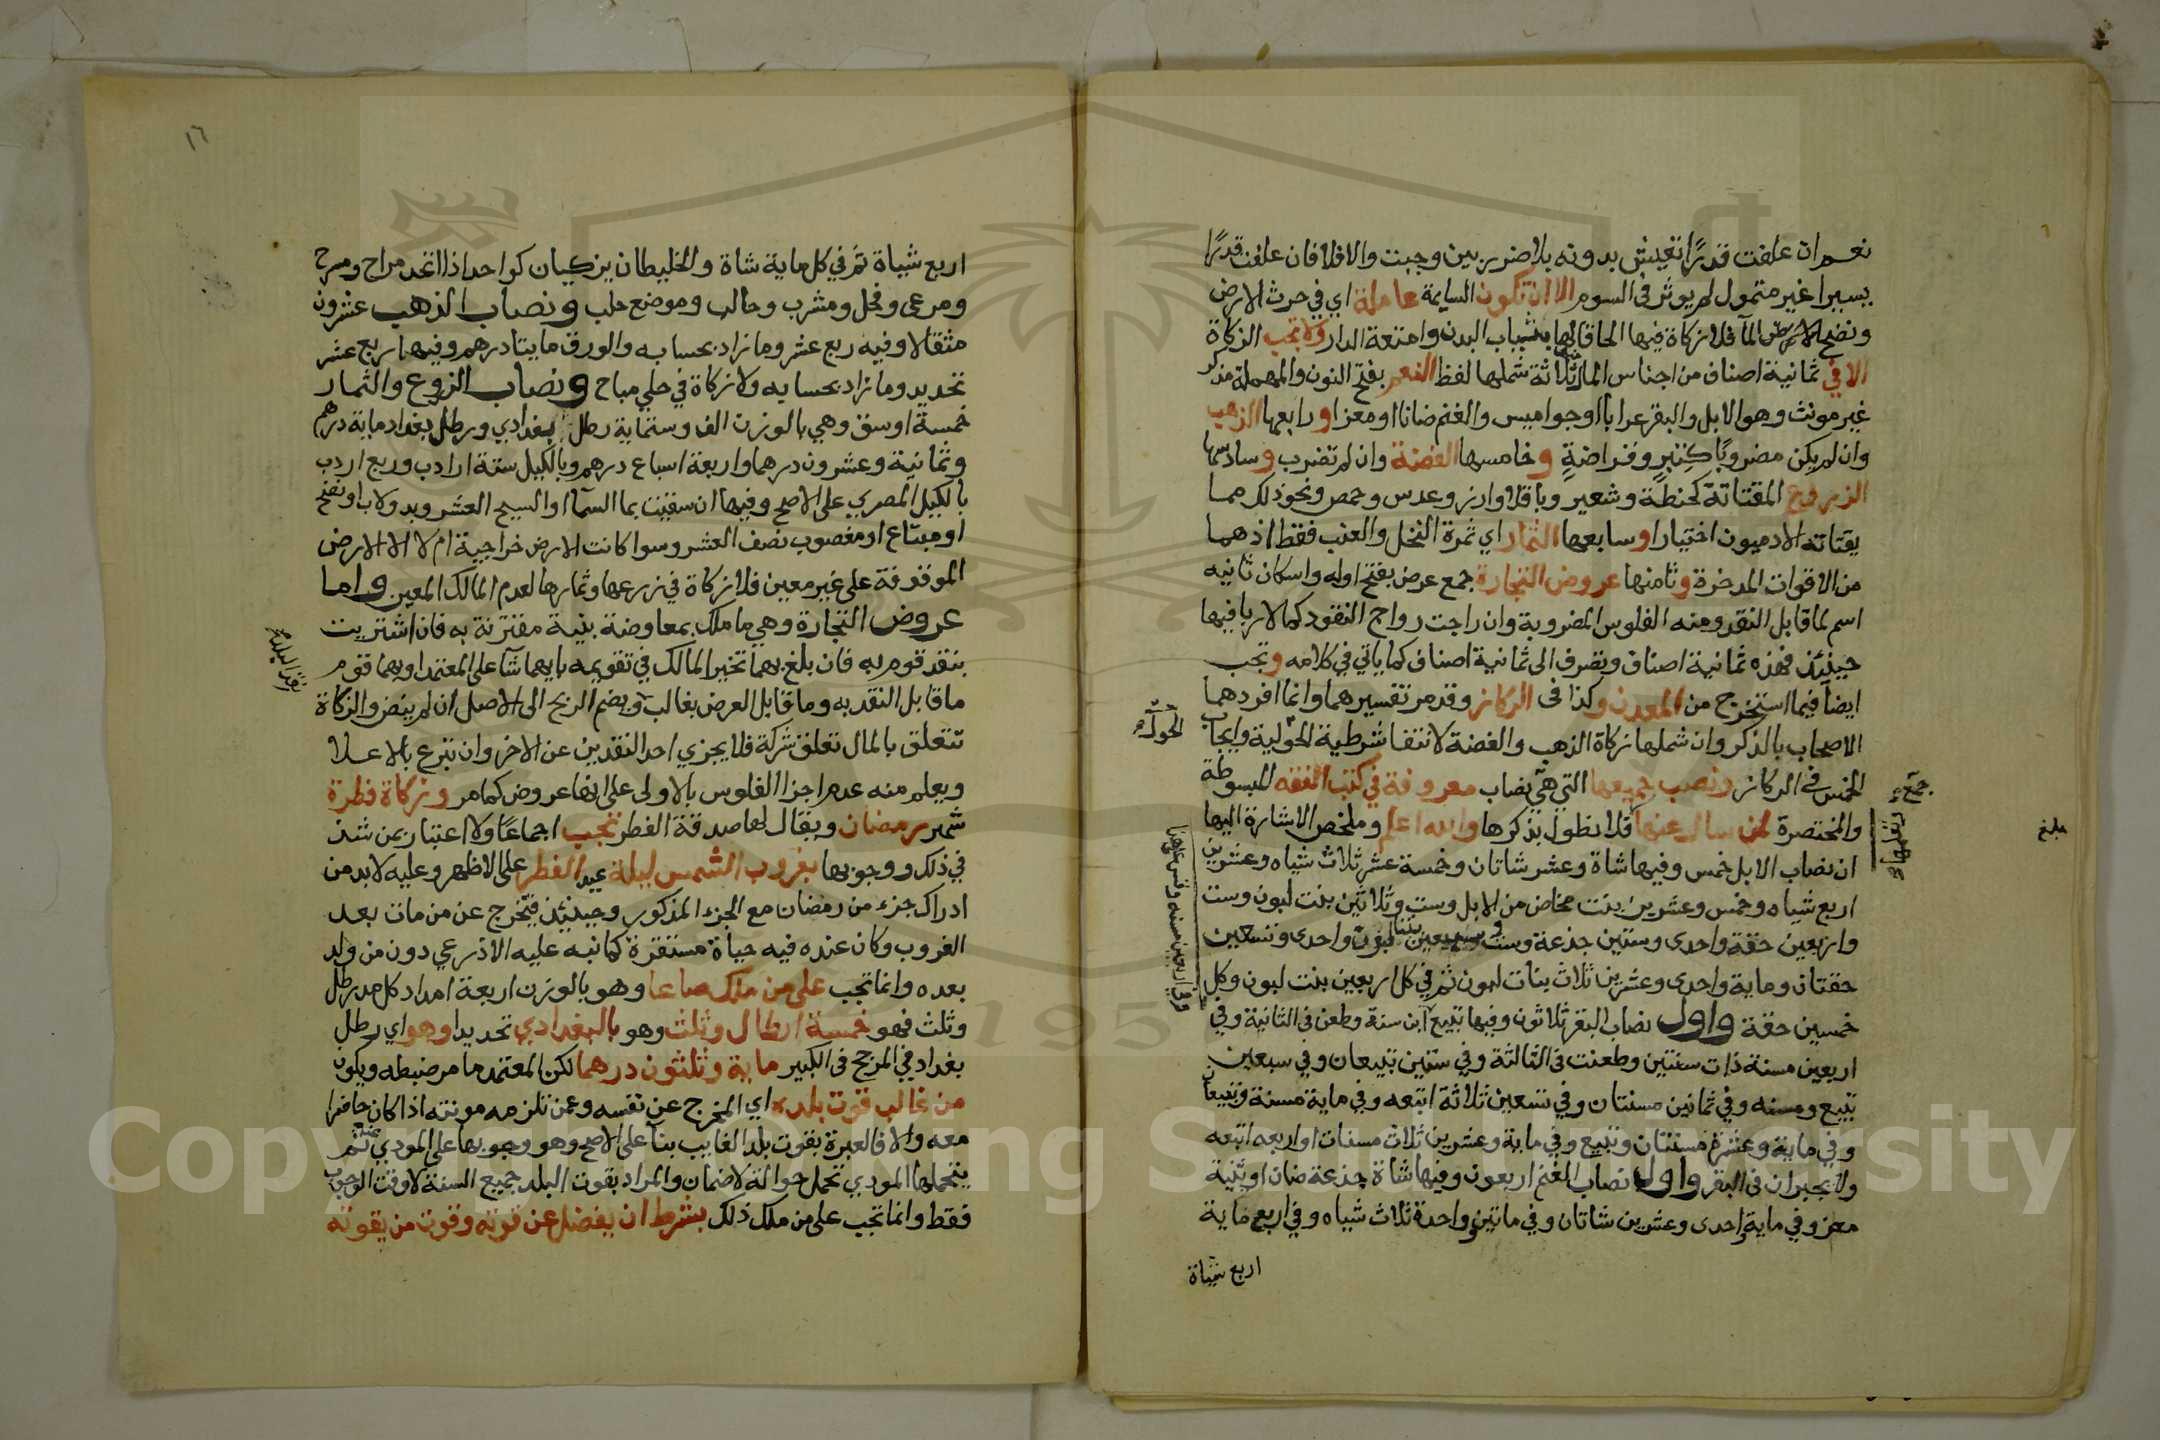 نعم ان علفت قدرًا تعيش بدونه بلا ضرر بين وجبت والا فلا فان علفت قدرًا
يسيرا غير متمول لم يوثر في السوم الا ان تكون السايمة عاملة اي في حرث الارض
ونضح الارض المآ فلا زكاة فيها الحاقا لها بثياب البدن وامتعة الدار ولا تجب الزكاة
الا في ثمانية اصناف من اجناس المال ثلاثة شملها لفظ النعم بفتح النون والمهملة مذكر
غير مونث وهو الابل والبقر عرابا او جواميس والغنم ضانا او معزا و رابعها الذهب
وان لم يكن مضروبًا كتبرٍ وقراضةٍ و خامسها الفضة وان لم تضرب و سادسها
الزروع المقتاتة كحنطة وشعير وباقلا وارز وعدس وحمص ونحو ذلك مما
يقتاته الادميون اختيارا و سابعها الثمار اي ثمرة النخل والعنب فقط اذ هما
من الاقوات المدخرة و ثامنها عروض التجارة جمع عرض بفتح اوله واسكان ثانيه
اسم لما قابل النقد ومنه الفلوس المضروبة وان راجت رواج النقود كما لا ربا فيها
حينئذ فهذه ثمانية اصناف وتصرف الى ثمانية اصناف كما ياتي في كلامه و تجب
ايضا فيما استخرج من المعدن و كذا في الركاز وقد مر تفسيرهما وانما افردهما
الاصحاب بالذكر وان شملها زكاة الذهب والفضة لانتفا شرطية الحولية وايجاب
الخمس في الركاز ونصب جميعها التي هي نصاب معروفة في كتب الفقه المبسوطة
والمختصرة لمن سال عنها فلا نطول بذكرها والله اعلم وملخص الاشارة اليها
ان نصاب الابل خمس وفيها شاة وعشر شاتان وخمسة عشر ثلاث شياه وعشرين
اربع شياه وخمس وعشرين بنت مخاض من الابل وست وثلاثين بنت لبون وست
واربعين حقة واحدى وستين جذعة وست وسبعين بنتا لبون واحدى وتسعين
حقتان وماية واحدى وعشرين ثلاث بنات لبون ثم في كل اربعين بنت لبون وكل
خمسين حقة واول نصاب البقر ثلاثون وفيها تبيع ابن سنة وطعن في الثانية وفي
اربعين مسنة ذات سنتين وطعنت في الثالثة وفي ستين تبيعان وفي سبعين
تبيع ومسنه وفي ثمانين مسنتان وفي تسعين ثلاثة اتبعه وفي ماية مسنة وتبيعان
وفي ماية وعشرة مسنتان وتبيع وفي ماية وعشرين ثلاث مسنات او اربعه اتبعه
ولا يجبران في البقر واول نصاب الغنم اربعون وفيها شاة جذعة ضان او ثنية
معز وفي ماية واحدى وعشرين شاتان وفي ماتين وواحدة ثلاث شياه وفي اربع ماية
اربع شياة
الحولآء
جمع
بلغ
١٦
اربع شياة ثم في كل ماية شاة والخليطان يزكيان كواحد اذا اتحد مراح ومسرح
ومرعى وفحل ومشرب وحالب وموضع حلب ونصاب الذهب عشرون
مثقالا وفيه ربع عشر وما زاد بحسابه والورق مايتا درهم وفيها ربع عشر
تحديد وما زاد بحسابه ولا زكاة في حلي مباح ونصاب الزروع والثمار
خمسة اوسق وهي بالوزن الف وستماية رطل بغدادي ورطل بغداد ماية درهم
وثمانية وعشرون درهما واربعة اسباع درهم وبالكيل ستة ارادب وربع اردب
بالكيل المصري على الاصح وفيها ان سقيت بما السمآ او السيح العشر وبدولاب او نضح
او مبتاع او مغصوب نصف العشر وسوا كانت الارض خراجية ام لا الا الارض
الموقوفة على غير معين فلا زكاة في زرعها وثمارها لعدم المالك المعين واما
عروض التجارة وهي ما ملك بمعاوضة بنية مقترنة به فان اشتريت
بنقد قوم به فان بلغ بهما تخير المالك في تقويمه بايهما شآ على المعتمد او بهما قوم
ما قابل النقد به وما قابل العرض بغالب ويضم الربح الى الاصل ان لم ينض والزكاة
تتعلق بالمال تعلق شركة فلا يجزي احد النقدين عن الاخر وان تبرع بالاعلا
ويعلم منه عدم اجزا الفلوس بالاولى على انها عروض كما مر وزكاة فطرة
شهر رمضان ويقال لها صدقة الفطر تجب اجماعًا ولا اعتبار بمن شذ
في ذلك ووجوبها بغروب الشمس ليلة عيد الفطر على الاظهر وعليه لابد من
ادراك جزء من رمضان مع الجزء المذكور وحينئذ فتخرج عن من مات بعد
الغروب وكان عنده فيه حياة مستقرة كما نبه عليه الاذرعي دون من ولد
بعده وانما تجب على من ملك صاعا وهو بالوزن اربعة امداد كل مد رطل
وثلث فهو خمسة ارطال وثلث وهو بالبغدادي تحديدا وهو اي رطل
بغداد في المرجح في الكبير ماية وثلثون درهما لكن المعتمد ما مر ضبطه ويكون
من غالب قوت بلده اي المخرج عن نفسه وعمن تلزمه مونته اذا كان حاضرا
معه والا فالعبرة بقوت بلد الغايب بنآ على الاصح وهو وجوبها على المودي عنه ثم
يتحملها المودي تحمل حوالة لا ضمان والمراد بقوت البلد جميع السنة لا وقت الوجوب
فقط وانما تجب على من ملك ذلك بشرط ان يفضل عن قوته وقوت من يقوته
Copyright © King Saud University
195